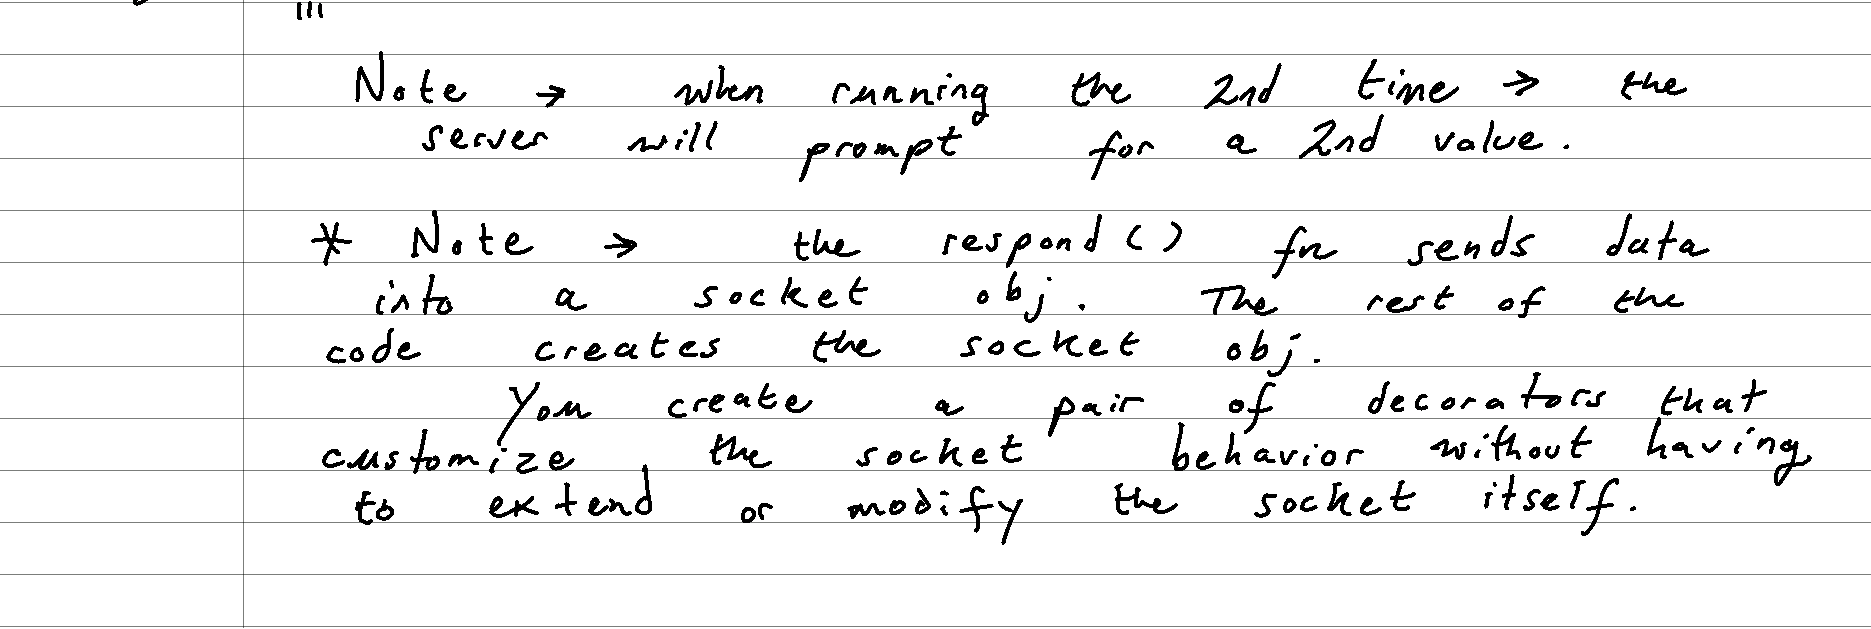 Note → when running the 2nd time → the
server will prompt for a 2nd value.
* Note → the respond() fn sends data
into a socket obj. The rest of the
code creates the socket obj.
You create a pair of decorators that
customize the socket behavior without having
to extend or modify the socket itself.